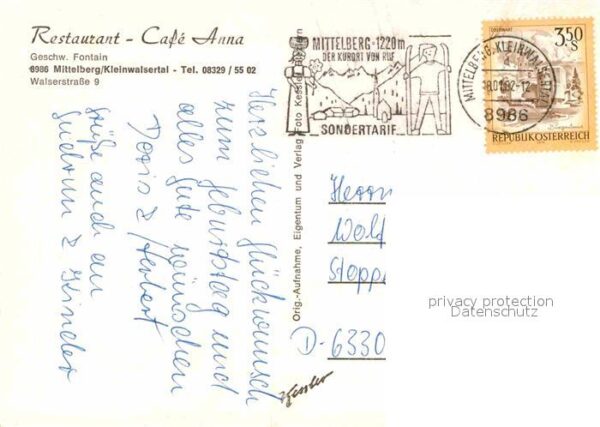 Restaurant - Café Anna
Geschw. Fontain
8986 Mittelberg/Kleinwalsertal - Tel. 08329 / 55 02
Walserstraße 9
Herzlichen Glückwunsch
zum Geburtstag und
alles Gute wünschen
Doris & Herbert
Grüße auch an
Gudrun & Kinder
Orig.-Aufnahme, Eigentum und Verlag Foto Kessler
Kessler
MITTELBERG · 1220m
DER KURORT VON RUF
SONDERTARIF
MITTELBERG-KLEINWALSERTAL
8986
3.50
S
REPUBLIK ÖSTERREICH
Herrn
Wolf
Stepp
D-6330
privacy protection
Datenschutz